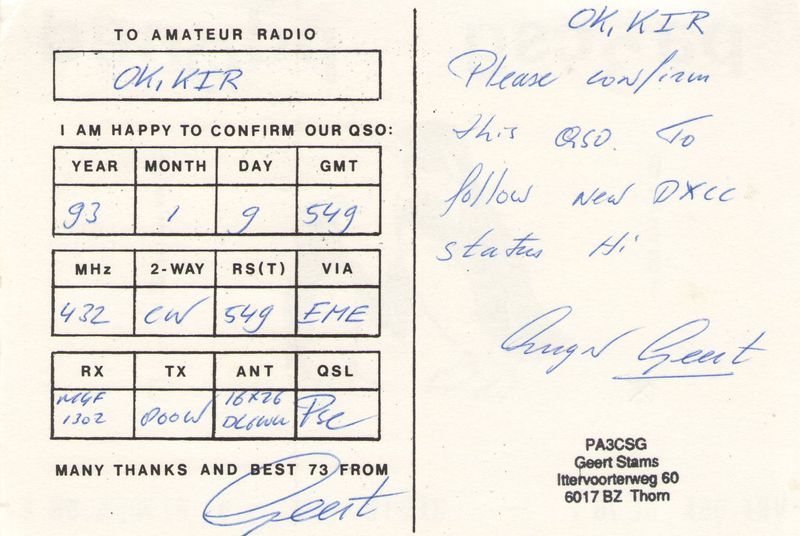 TO AMATEUR RADIO
OK1KIR
I AM HAPPY TO CONFIRM OUR QSO:
YEAR MONTH DAY GMT
93 1 9 549
MHz 2-WAY RS(T) VIA
432 CW 549 EME
RX TX ANT QSL
MGF 1302 800W 16x26 DL6WU Pse
MANY THANKS AND BEST 73 FROM
Geert
OK1KIR
Please confirm
this QSO. To
follow new DXCC
status Hi
Geert
PA3CSG
Geert Stams
Ittervoorterweg 60
6017 BZ Thorn